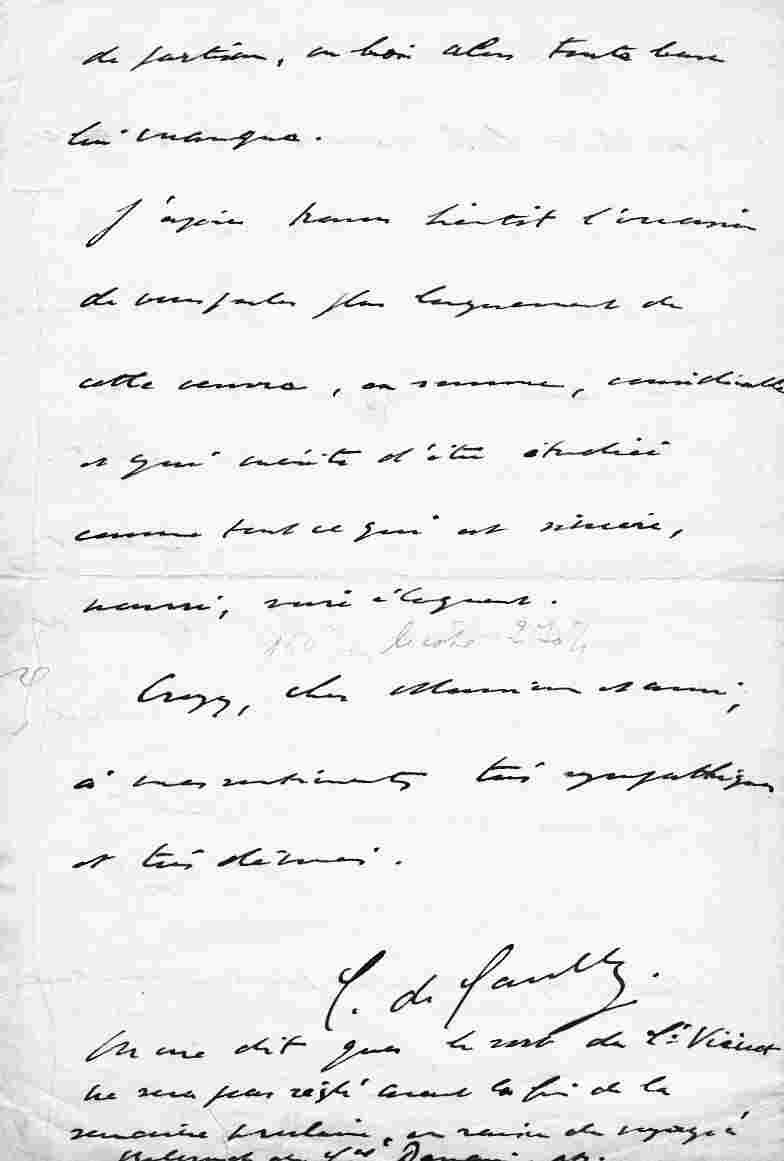 de partisan, ou bien alors toute base
lui manque.
J'espère trouver bientôt l'occasion
de vous parler plus longuement de
cette œuvre, en somme, considérable
et qui mérite d'être étudiée
comme tout ce qui est sincère,
nourri, voire éloquent.
Croyez, cher Monsieur et ami,
à mes sentiments très sympathiques
et très dévoués.
C. de Gaulle.
On me dit que le sort du Lt Viénot
ne sera pas réglé avant la fin de la
semaine prochaine, en raison du voyage à
du Gal